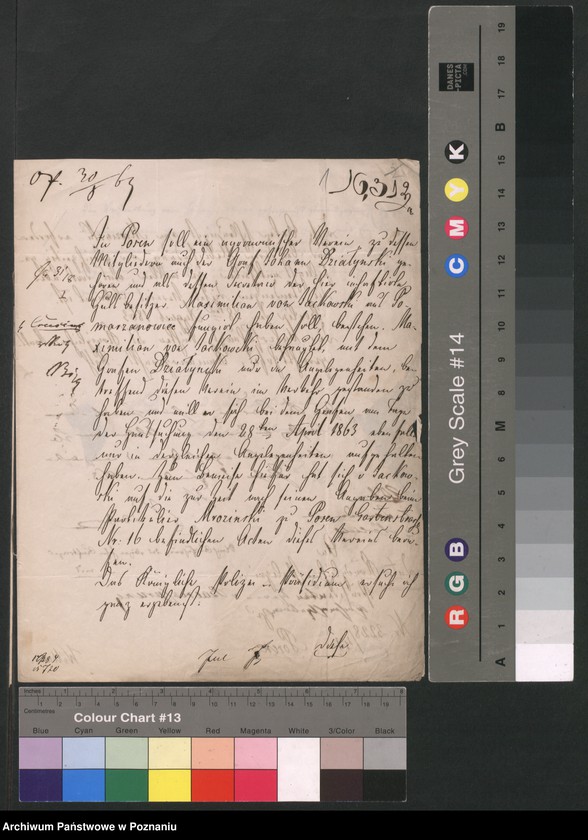 In Posen soll ein agronomischer Verein, zu dessen
Mitgliedern auch der Graf Johann Dzialynski ge-
hören und als dessen Secretair der hier inhaftirte
Gutsbesitzer Maximilian von Jackowski aus Po-
marzanowice fungirt haben soll, bestehen. Ma-
ximilian von Jackowski behauptet mit dem
Grafen Dzialynski nur in Angelegenheiten, be-
treffend diesen Verein im Verkehr gestanden zu
haben und will er sich bei dem Grafen am Tage
der Haussuchung den 28ten April 1863 ebenfalls
nur in dergleichen Angelegenheiten aufgehalten
haben. Zum Beweise hierfür hat sich v Jackow-
ski auf die zur Zeit nach seinen Angaben beim
Mrozinski zu Posen Gartenstraße
Nr. 16 befindlichen Acten dieses Vereins beru-
fen.
Das Königliche Polizei-Präsidium ersuche ich
ganz ergebenst:
diese
Inches
Centimetres
Colour Chart #13
Blue Cyan Green Yellow Red Magenta White 3/Color Black
DANES
-PICTA
.COM
Grey Scale #14
R G B C M Y K
A 1 2 3 4 5 6 M 8 9 10 11 12 13 14 15 B 17 18 19
Archiwum Państwowe w Poznaniu